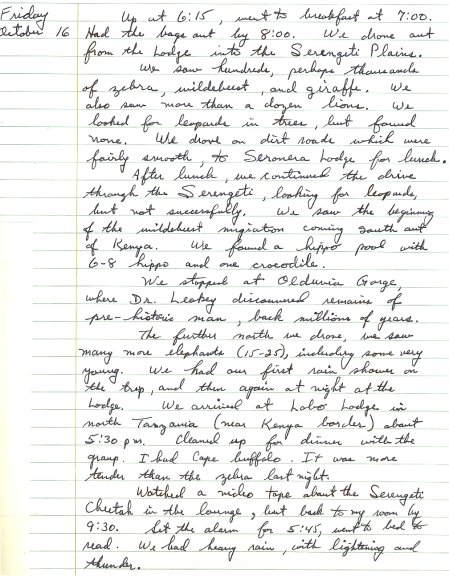 Friday
October 16
Up at 6:15, went to breakfast at 7:00.
Had the bags out by 8:00. We drove out
from the Lodge into the Serengeti Plains.
We saw hundreds, perhaps thousands
of zebra, wildebeest, and giraffe. We
also saw more than a dozen lions. We
looked for leopards in trees, but found
none. We drove on dirt roads which were
fairly smooth, to Seronera Lodge for lunch.
After lunch, we continued the drive
through the Serengeti, looking for leopards,
but not successfully. We saw the beginning
of the wildebeest migration coming south out
of Kenya. We found a hippo pool with
6-8 hippo and one crocodile.
We stopped at Olduvia Gorge,
where Dr. Leakey discovered remains of
pre-historic man, back millions of years.
The further north we drove, we saw
many more elephants (15-25), including some very
young. We had our first rain shower on
the trip, and then again at night at the
Lodge. We arrived at Lobo Lodge in
north Tanzania (near Kenya border) about
5:30 pm. Cleaned up for dinner with the
group. I had Cape buffalo. It was more
tender than the zebra last night.
Watched a video tape about the Serengeti
Cheetah in the lounge, but back to my room by
9:30. Set the alarm for 5:45, went to bed to
read. We had heavy rain, with lightening and
thunder.